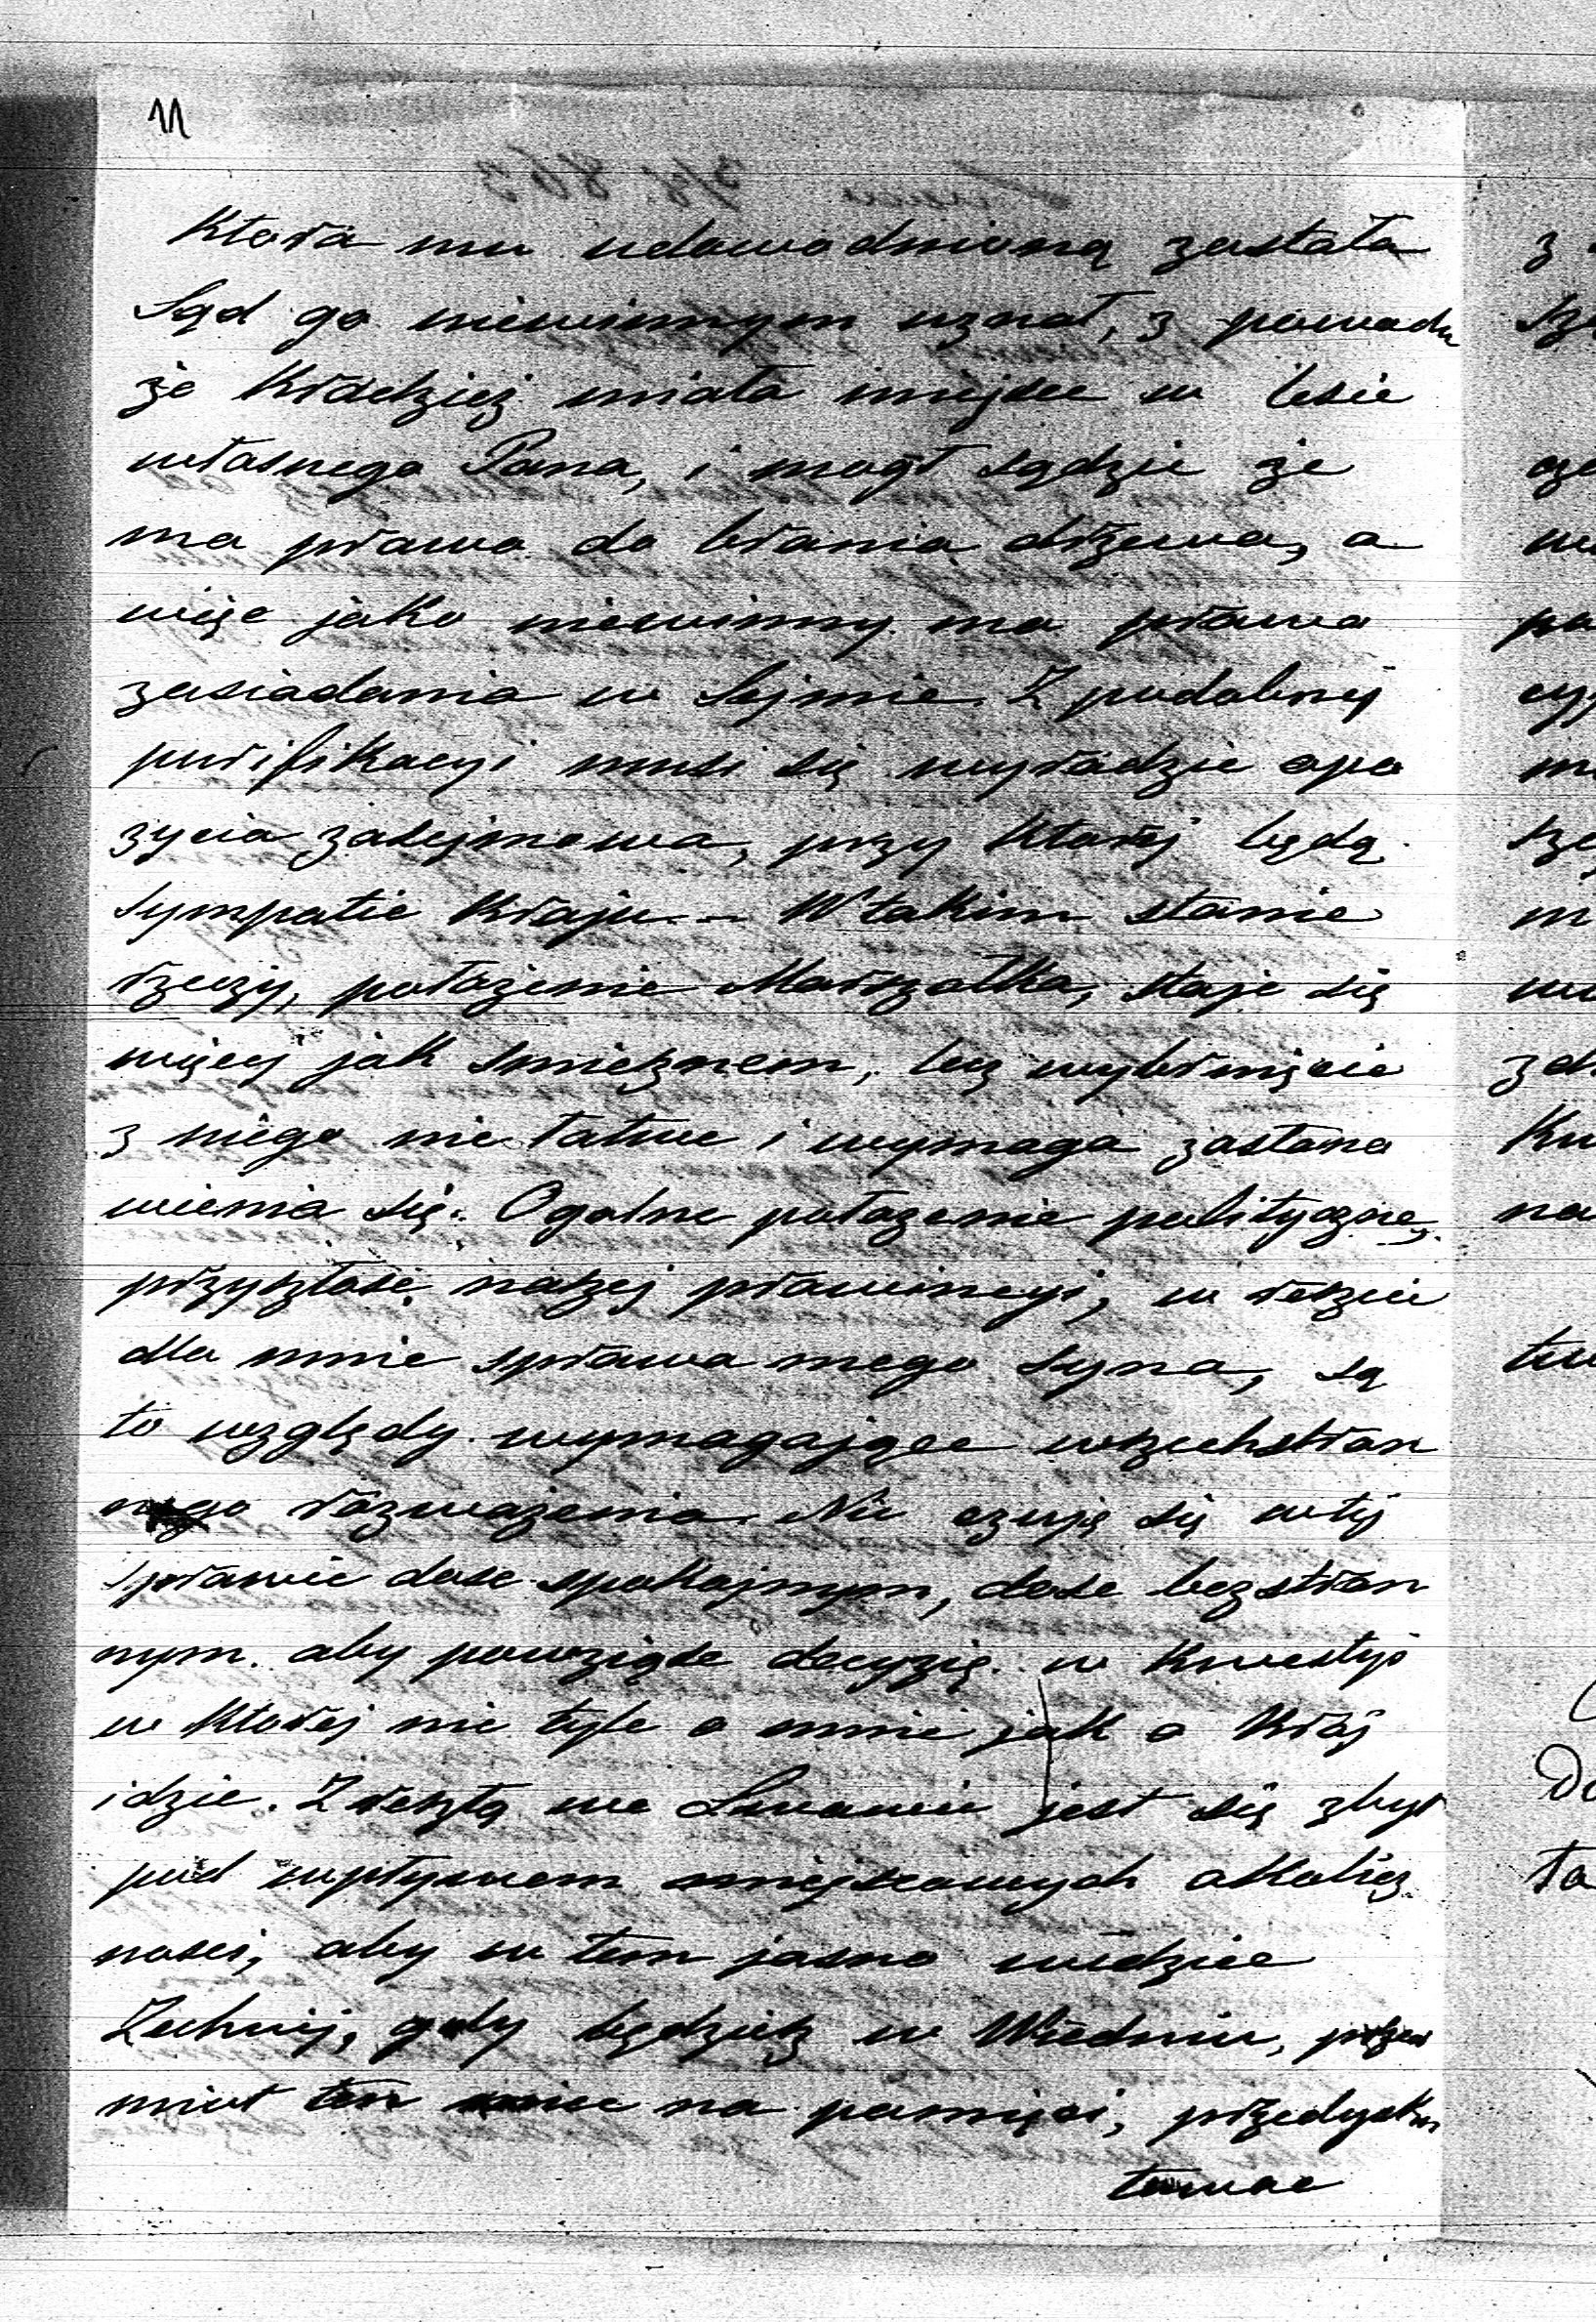 11
Która mu udowodnioną została
Sąd go niewinnym uznał, z powodu
że Kradzież miała miejsce w lesie
własnego Pana, i mogł sądzic że
ma prawo do brania drzewa, a
więc jako niewinny ma prawo
zasiadania w Sejmie. Z podobnej
purifikacyi musi się wyradzic opo
zycia zasejmowa, przy Której będą
sympatie Kraju.- W takim stanie
rzeczy, położenie Marszałka, staje się
więcej jak smiesznem, lecz wybrnięcie
z niego nie łatwe i wymaga zastano
wienia się. Ogolne położenie polityczne,
przyszłosc naszej prowincyi, w reszcie
dla mnie sprawa mego syna, są
to względy wymagające wszechstron
nego rozważenia. Nie czuję się w tej
sprawie dosc spokojnym, dosc bezstron
nym aby powziąsc decyzię w Kwestyi
w Ktorej nie tyle o mnie jak o Kraj
idzie. Z resztą we Lwowie jest się zbyt
pod wpływem miejscowych okolicz
nosci, aby w tem jasno widziec
Zechciej, gdy będziesz w Wiedniu, przed
miot ten miec na pamięci, przedysku
towac
z
sz
cze
w
po
cy
m
sze
m
zd
Kw
na
tw
ta